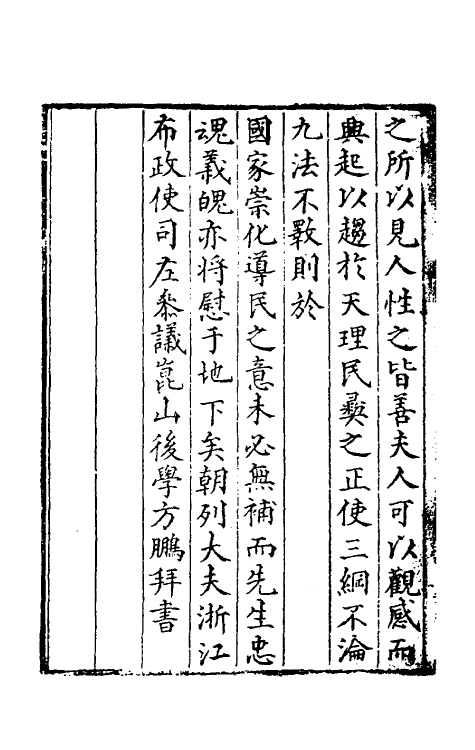 之所以見人性之皆善夫人可以觀感而
興起以趨於天理民彜之正使三綱不淪
九法不斁則於
國家崇化導民之意未必無補而先生忠
魂義魄亦将慰于地下矣朝列大夫浙江
布政使司左叅議崑山後學方鵬拜書